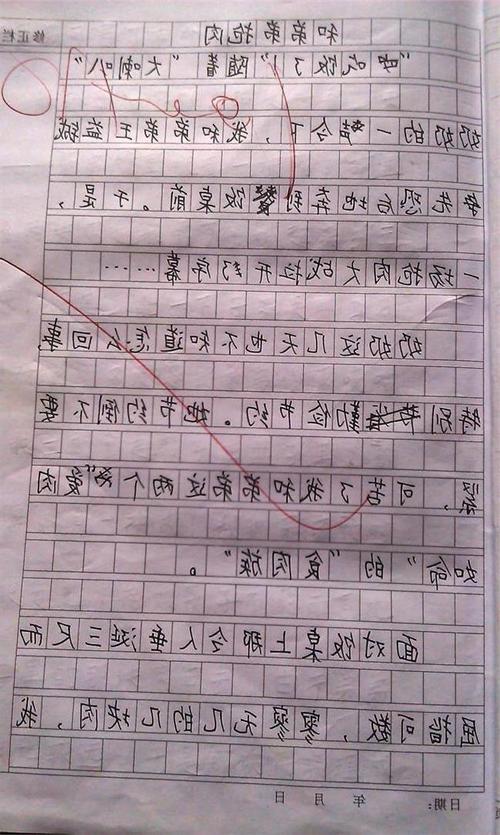 修正栏
和弟弟抢肉
“吃饭了!”随着“大喇叭”
奶奶的一声令下,我和弟弟王益铖
争先恐后地奔到餐饭桌前。于是,
一场抢肉大战拉开了序幕……
奶奶这几天也不知道怎么回事,
特别勤俭节约。她节约倒不要
紧,可苦了我和弟弟这两个“爱肉
如命”的“食肉族”。
面对饭桌上那令人垂涎三尺而
屈指可数,寥寥无几的几块肉,我
日期: 年 月 日